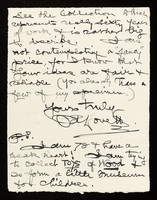 See the collection which
represents nearly sixty years
of work & is carried by
I am
not contemplating a fancy
price for I know that
your ideas are fair &
sensible. You already have a
few of my specimens.
Yours truly
P.S.
I am 78 & have a
weak heart. I am trying
to collect TOYS of Wood
to form a little museum
for children.